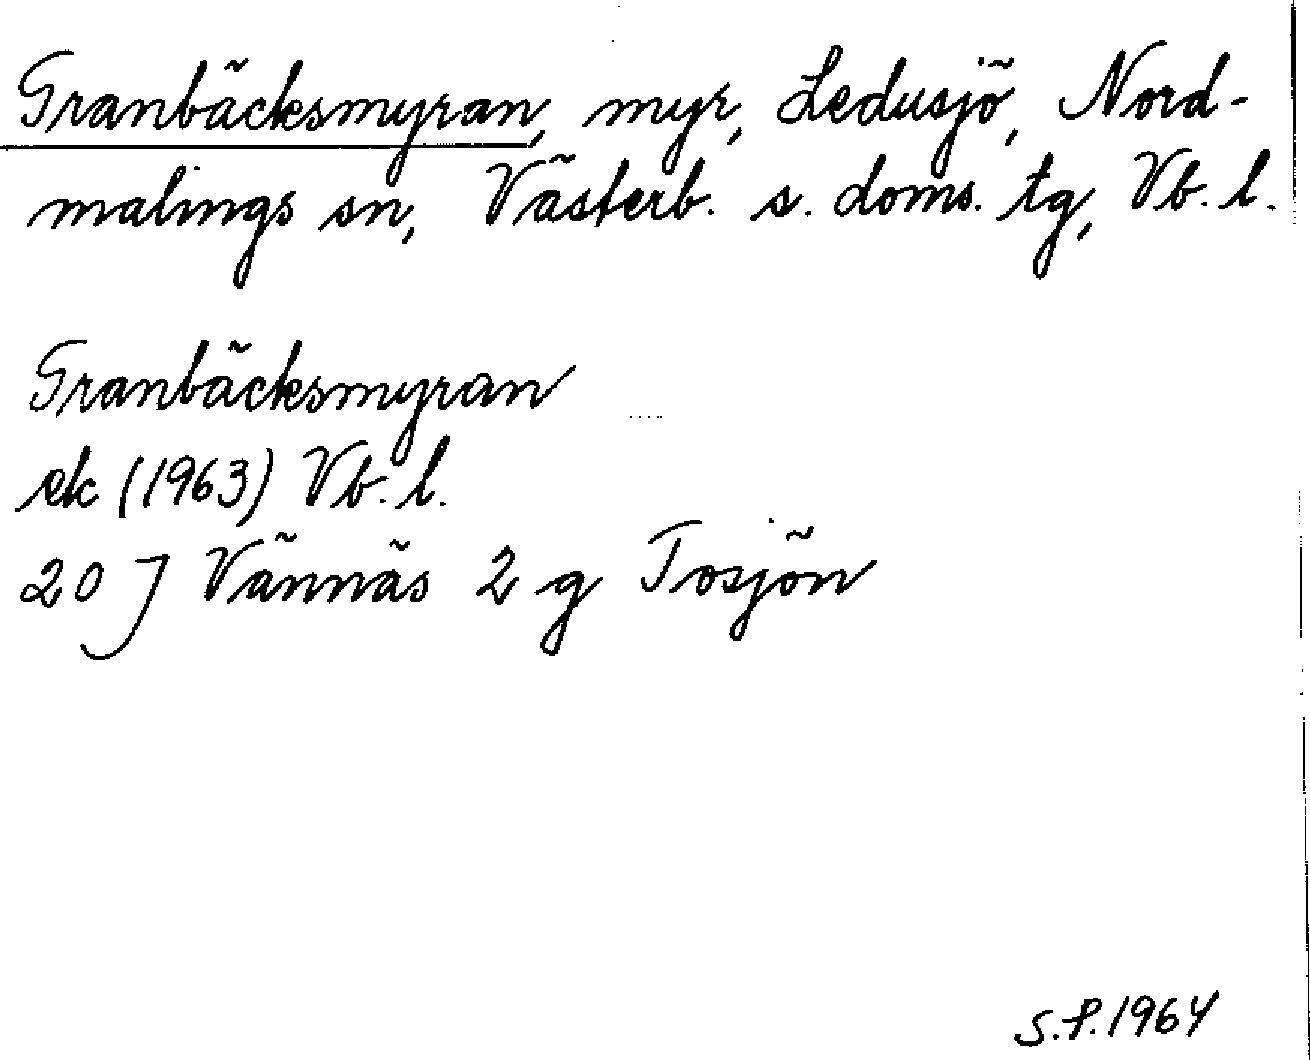 Granbäcksmyran, myr, Ledusjö, Nord-
malings sn, Västerb. s. doms. tg, Vb. l.
Granbäcksmyran
ek (1963) Vb. l.
20 J Vännäs 2 g Tosjön
S.P. 1964